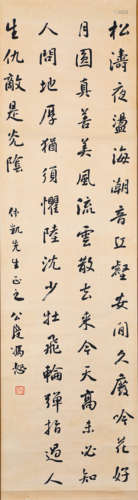 松濤夜盪海潮音江壑安間久廢吟花好
月圓真善美風流雲散去来今天高未必知
人問地厚猶須懼陸沈少壯飛輪彈指過人
生仇敵是光陰
凱先生正之 公度馮恕